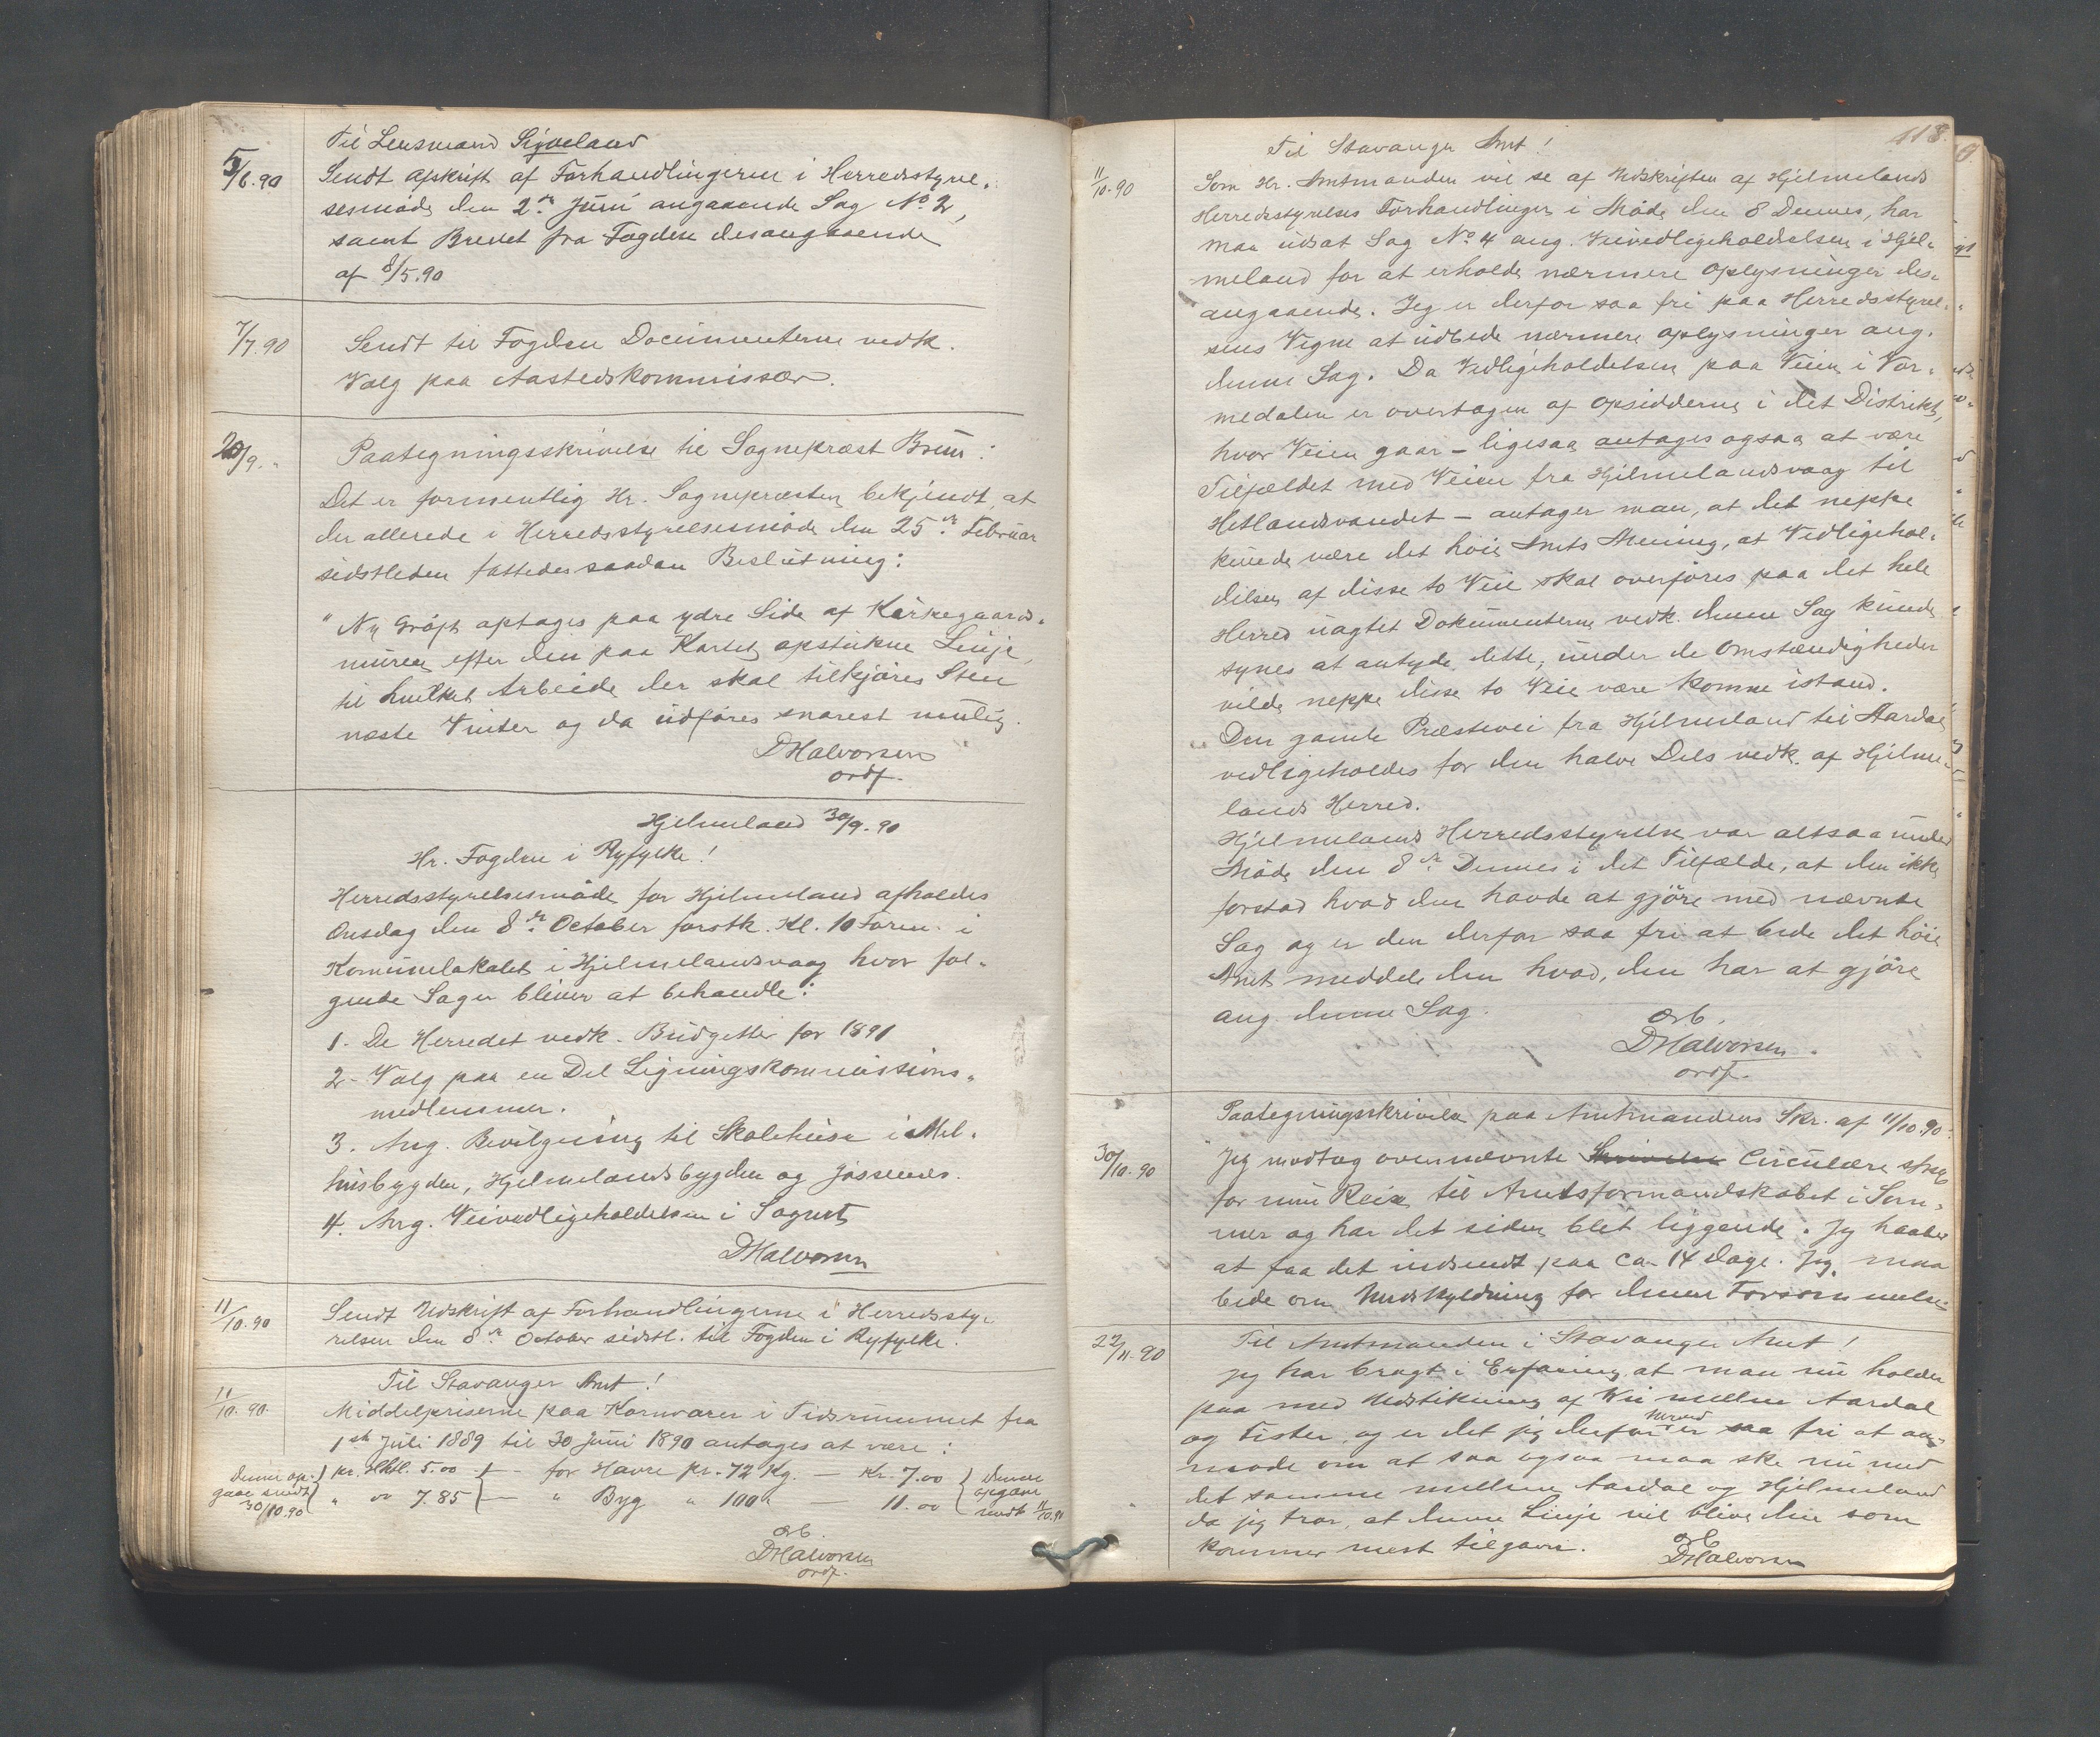 Til Lensmand Sigveland
5/6.90 Sendt afskrift af Forhandlingerne i Herredsstyrel-
sesmøde den 2de Juni angaaende Sag No 2,
samt Brevet fra Fogden desangaaende
af 8/5.90
7/7.90 Sendt til Fogden Documenterne vedk.
Valg paa Aastedskommissær.
20/9. " Paategningsskrivelse til Sognepræst Bruun:
Det er formentlig Hr. Sognepræsten bekjendt, at
der allerede i Herredsstyrelsesmøde den 25de Februar
sidstleden fattedes saadan Beslutning:
"Ny Grøft optages paa ydre Side af Kirkegaards-
muren efter den paa Kartet opstukne Linje,
til hvilket Arbeide der skal tilkjøres Sten
næste Vinter og da udføres snarest mulig.
DHalvorsen
ordf.
Hjelmeland 30/9.90
Hr. Fogden i Ryfylke!
Herredsstyrelsesmøde for Hjelmeland afholdes
Onsdag den 8de October førstk. Kl. 10 Form. i
Komunelokalet i Hjelmelandsvaag hvor føl-
gende Sager bliver at behandle:
1. De Herredet vedk. Budgetter for 1891
2. Valg paa en Del Ligningskommissions-
medlemmer.
3. Ang. Bevilgning til Skolehuse i Mel-
husbygden, Hjelmelandsbygden og Jøssenes.
4. Ang. Veivedligeholdelsen i Sognet
DHalvorsen
11/10.90 Sendt Udskrift af Forhandlingerne i Herredssty-
relsen den 8de October sidstl. til Fogden i Ryfylke.
11/10.90. Til Stavanger Amt!
Middelpriserne paa Kornvarer i Tidsrummet fra
1ste Juli 1889 til 30 Juni 1890 antages at være:
Denne op- } pr. Hktl. 5.00 } — for Havre pr. 72 Kg. — Kr. 7.00 { Denne
gave sendt " " 7.85 } — " Byg " 100 " — 11.00 { opgave
30/10.90 sendt 11/10.90
Ærb.
DHalvorsen
ordf.
118.
Til Stavanger Amt!
11/10.90 Som Hr. Amtmanden vil se af Udskriften af Hjelmelands
Herredsstyrelses Forhandlinger i Møde den 8 Dennes, har
man udsat Sag No 4 ang. Veivedligeholdelsen i Hjel-
meland for at erholde nærmere oplysninger des-
angaaende. Jeg er derfor saa fri paa Herredsstyrel-
sens Vegne at udbede nærmere oplysninger ang.
denne Sag. Da Vedligeholdelsen paa Veien i Vor-
medalen er overtagen af opsidderne i det Distrikt,
hvor Veien gaar – ligesaa antages ogsaa at være
Tilfældet med Veien fra Hjelmelandsvaag til
Hetlandsvandet – antager man, at det neppe
kunde være det høie Amts Mening, at Vedligehol-
delsen af disse to Veie skal overføres paa det hele
Herred uagtet Dokumenterne vedk. denne Sag kunde
synes at antyde dette, under de Omstændigheder
vilde neppe disse to Veie være komne istand.
Den gamle Præstevei fra Hjelmeland til Aardal
vedligeholdes for den halve Dels vedk. af Hjelme-
lands Herred.
Hjelmelands Herredsstyrelse var altsaa under
Møde den 8de Dennes i det Tilfælde, at den ikke
forstod hvad den havde at gjøre med nævnte
Sag og er den derfor saa fri at bede det høie
Amt meddele den hvad, den har at gjøre
ang. denne Sag.
Ærb.
DHalvorsen.
ordf.
Paategningsskrivelse paa Amtmandens Skr. af 11/10.90.
30/10.90 Jeg modtog ovennævnte Skrivelse Circulære strax
før min Reise til Amtsformandskabet i Som-
mer og har det siden blet liggende. Jeg haaber
at faa det indsendt paa ca. 14 Dage. Jeg maa
bede om Undskyldning for denne Forsømmelse
22/11.90 Til Amtmanden i Stavanger Amt!
Jeg har bragt i Erfaring, at man nu holder
paa med Udstikning af Vei mellem Aardal
og Fister, og er det jeg derfor herved er saa fri at an-
mode om at saa ogsaa maa ske nu med
det samme mellem Aardal og Hjelmeland
da jeg tror, at denne Linje vil blive den som
kommer mest tilgavn.
Ærb
DHalvorsen